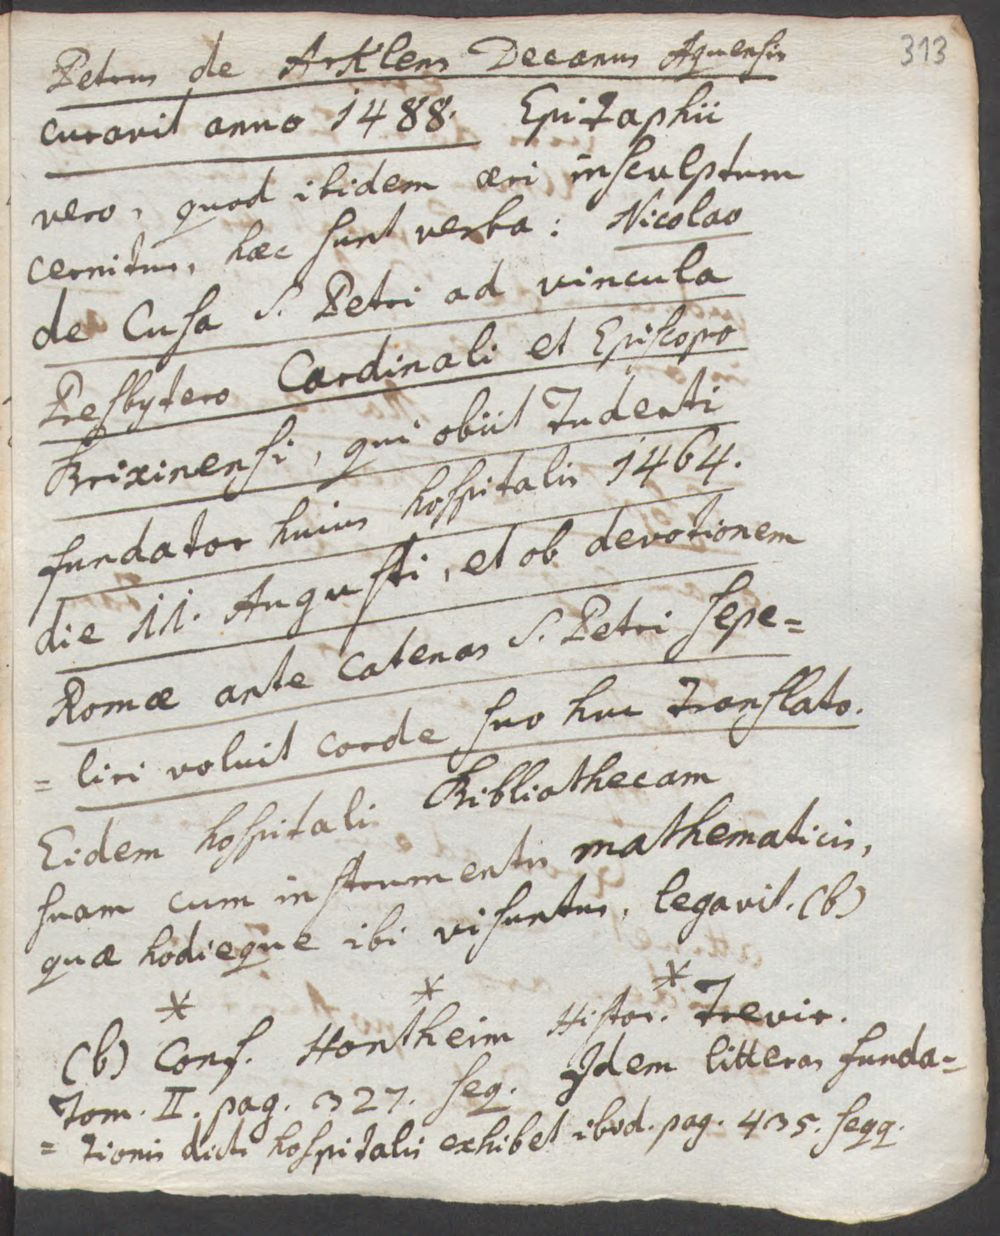 313
Petrus de Arklens Decanus Aquensis
curavit anno 1488. Epitaphii
vero, quod ibidem æri insculptum
cernitur, hæc sunt verba: Nicolao
de Cusa S. Petri ad vincula
Presbytero Cardinali et Episcopo
Brixinensi, qui obiit Tuderti
fundator huius hospitalis 1464.
die 11. Augusti, et ob devotionem
Romæ ante catenas S. Petri sepe=
=liri voluit corde suo huc translato.
Eidem hospitali Bibliothecam
suam cum instrumentis mathematicis,
quæ hodieque ibi visuntur, legavit. (b)
* * *
(b) Conf. Hontheim Histor. Trevir.
Tom. II. pag. 327. seq. Idem litteras funda=
=tionis dicti hospitalis exhibet ibid. pag. 435. seqq.